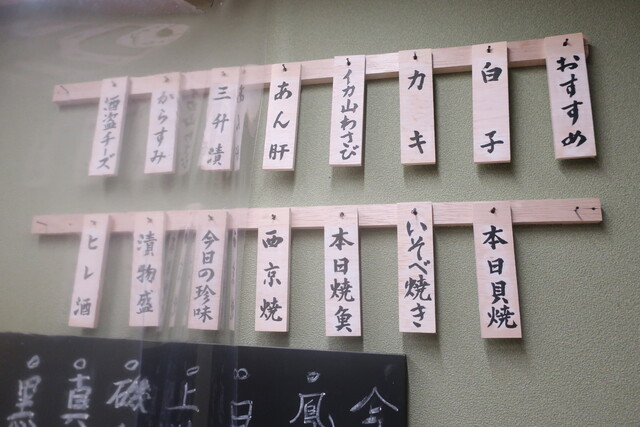 おすすめ
白子
カキ
イカ山わさび
あん肝
三升漬
からすみ
酒盗チーズ
本日貝焼
いそべ焼き
本日焼魚
西京焼
今日の珍味
漬物盛
ヒレ酒
鳳
日
上
磯
真
黒